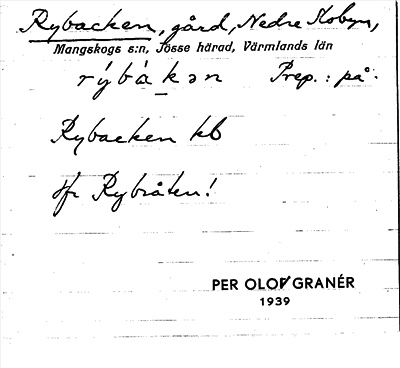 Rybacken, gård, Nedre Kobyn,
Mangskogs s:n, Jösse härad, Värmlands län
rýbàkən Prep.: på.
Rybacken kb
Jfr Rybråten!
PER OLOF GRANÉR
1939